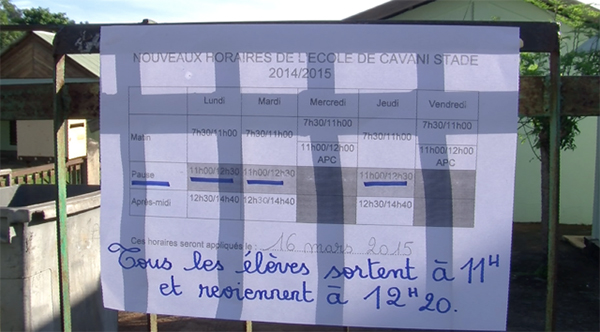 NOUVEAUX HORAIRES DE L'ECOLE DE CAVANI STADE
2014/2015
Lundi Mardi Mercredi Jeudi Vendredi
Matin 7h30/11h00 7h30/11h00 7h30/11h00 7h30/11h00 7h30/11h00
11h00/12h00 11h00/12h00
APC APC
Pause 11h00/12h30 11h00/12h30 11h00/12h30
Après-midi 12h30/14h40 12h30/14h40 12h30/14h40
Ces horaires seront appliqués le : 16 mars 2015
Tous les élèves sortent à 11H
et reviennent à 12H20.